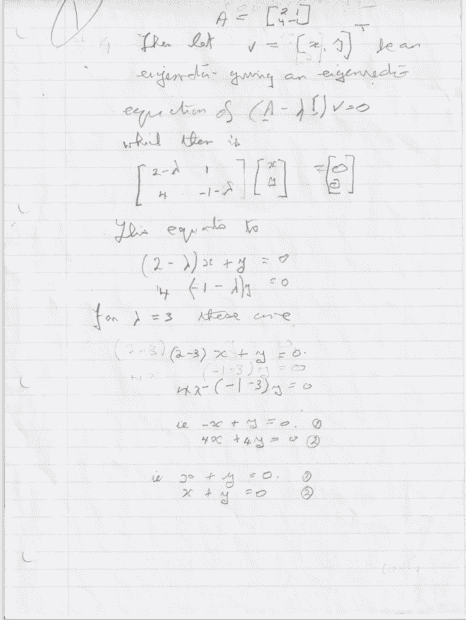 A = [2 1 4 -1]
Then let v = [x, y]^T be an
eigenvector giving an eigenvector
equation of (A - λI) v = 0
which then is
[2-λ 1 4 -1-λ] [x y] = [0 0]
This equates to
(2 - λ)x + y = 0
4 (-1 - λ)y = 0
for λ = 3 these are
(2-3) (2-3) x + y = 0.
(-1-3)y = 0
4x - (-1-3)y = 0
ie -x + y = 0. ①
4x + 4y = 0 ②
ie x + y = 0. ①
x + y = 0 ②